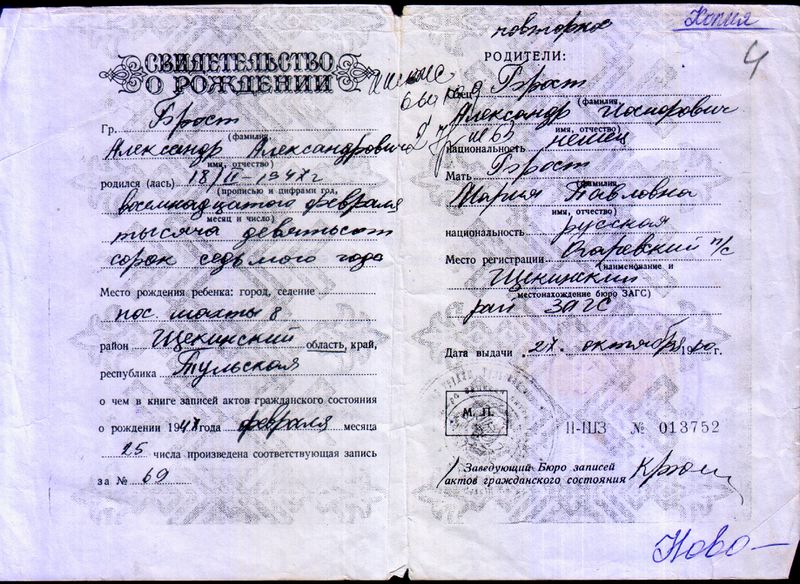 Копия
4
СВИДЕТЕЛЬСТВО
О РОЖДЕНИИ
Гр. Брост
(фамилия,
Александр Александрович
имя, отчество)
родился (лась) 18/II-1947г
(прописью и цифрами год,
восемнадцатого февраля
месяц и число)
тысяча девятьсот
сорок седьмого года
Место рождения ребенка: город, селение
пос. шахты 8
район Щекинский область, край,
республика Тульская
о чем в книге записей актов гражданского состояния
о рождении 1947 года февраля месяца
25 числа произведена соответствующая запись
за № 69
повторное
РОДИТЕЛИ:
Отец Брост
(фамилия,
Александр
имя, отчество)
национальность немец
Мать Брост
(фамилия,
Мария Павловна
имя, отчество)
национальность русская
Место регистрации Огаревский п/с
(наименование и
Щекинский
местонахождение бюро ЗАГС)
рай ЗАГС
Дата выдачи 27 октября 19 г.
М. П.
II-ШЗ № 013752
Заведующий Бюро записей
актов гражданского состояния
Ново-